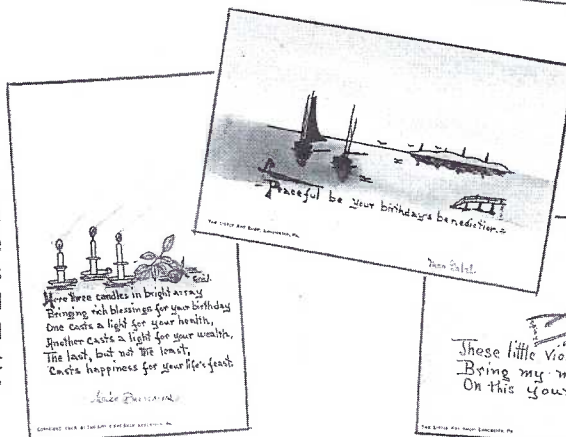 Peaceful be your birthday's benediction.
THE LITTLE ART SHOP, LANCASTER, PA.
Here three candles in bright array
Bringing rich blessings for your birthday
One casts a light for your health,
Another casts a light for your wealth,
The last, but not the least,
Casts happiness for your life's feast.
These little Vio
Bring my m
On this your
THE LITTLE ART SHOP, LANCASTER, PA.